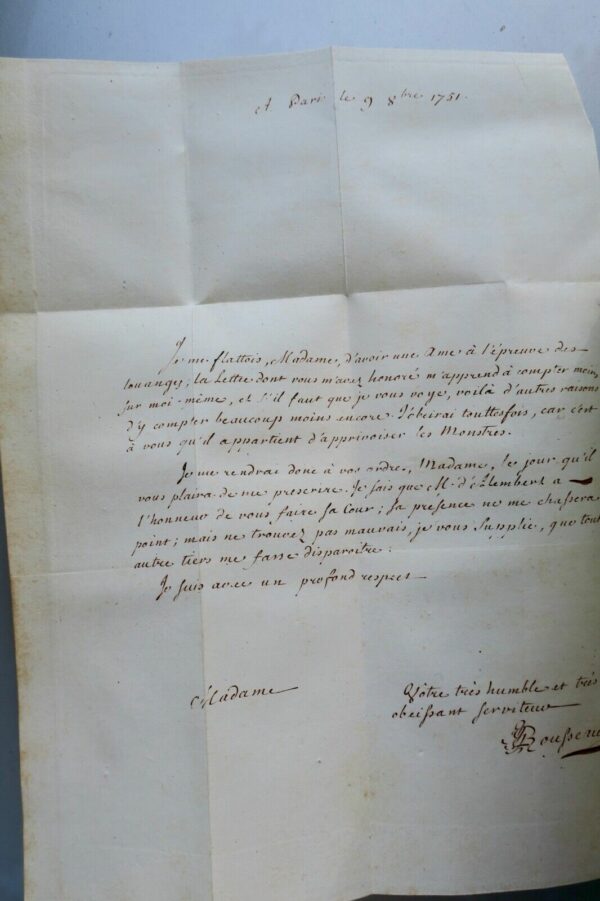 A Paris le 9 8bre 1751.
Je me flattois, Madame, d'avoir une Ame à l'épreuve des
louanges; la Lettre dont vous m'avez honoré m'apprend à compter moins
sur moi-même, et s'il faut que je vous voye, voilà d'autres raisons
d'y compter beaucoup moins encore. J'obéirai touttesfois, car c'est
à vous qu'il appartient d'apprivoiser les Monstres.
Je me rendrai donc à vos ordres, Madame, le jour qu'il
vous plaira de me prescrire. Je sais que M. d'Alembert a
l'honneur de vous faire sa Cour; sa présence ne me chassera
point; mais ne trouvez pas mauvais, je vous supplie, que tout
autre tiers me fasse disparoître.
Je suis avec un profond respect
Madame
Vôtre très humble et très
obeissant serviteur
JJRousseau